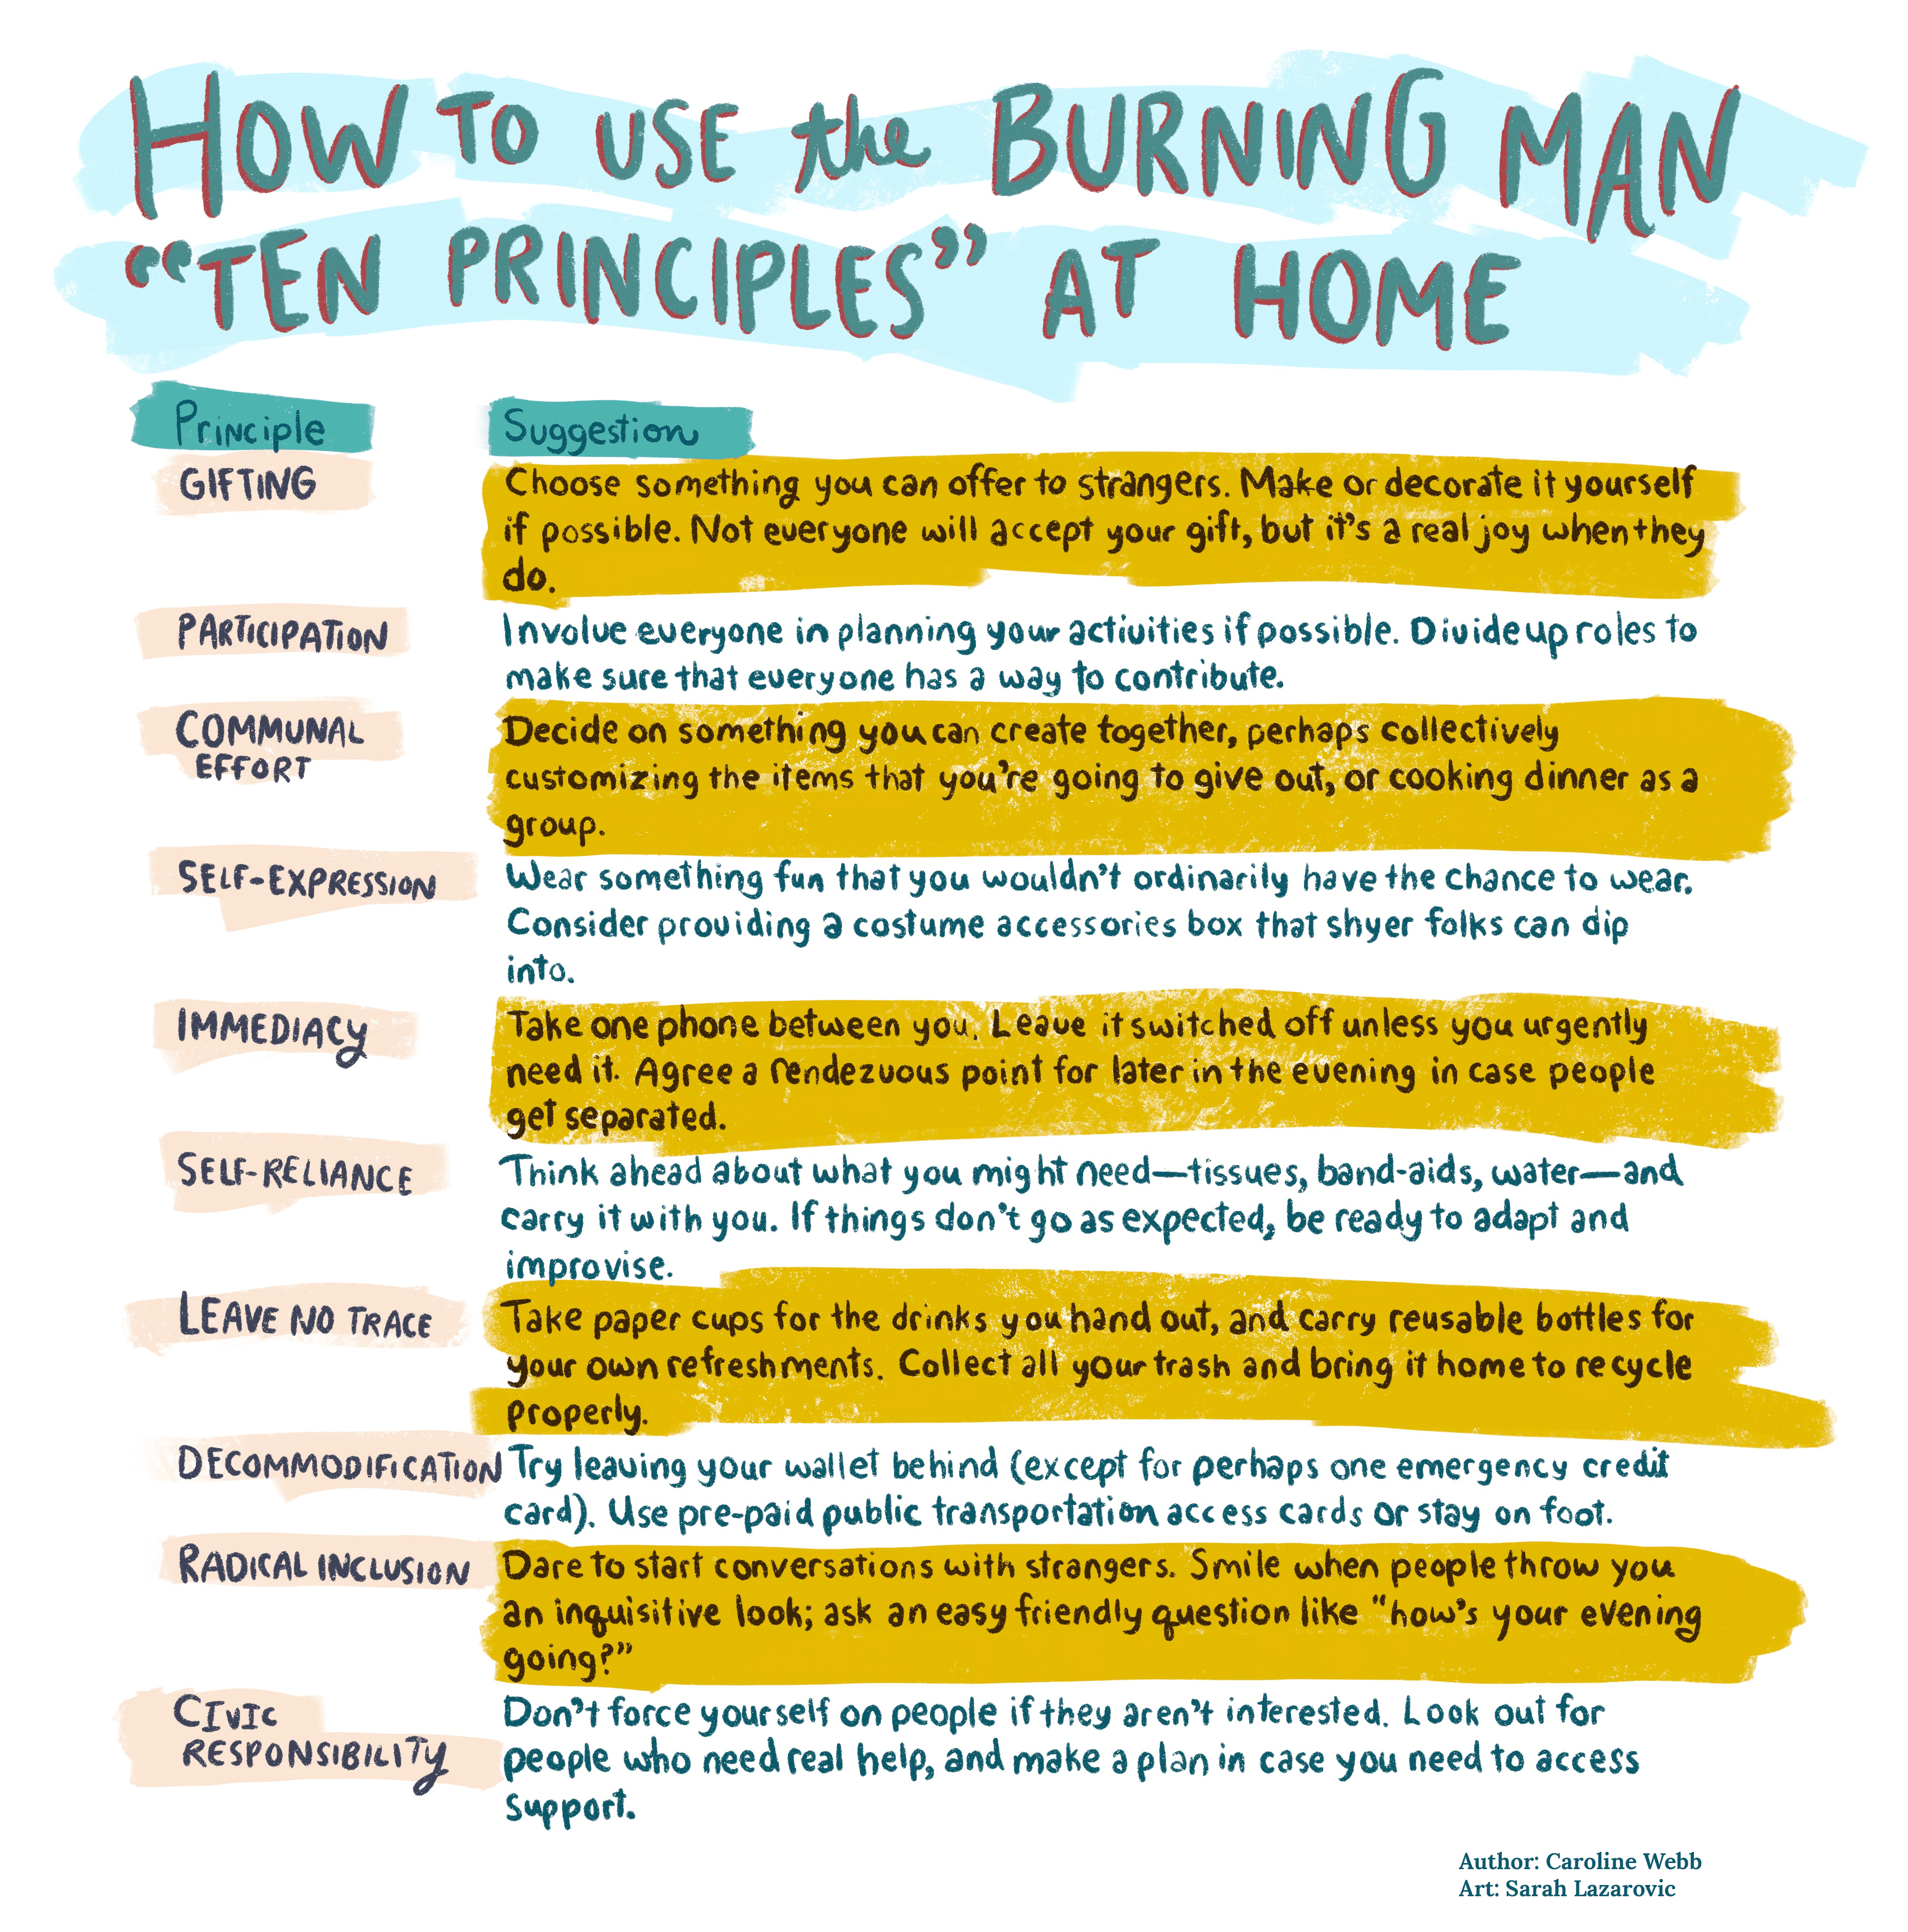 HOW TO USE the BURNING MAN
“TEN PRINCIPLES” AT HOME
Principle
Suggestion
GIFTING
Choose something you can offer to strangers. Make or decorate it yourself
if possible. Not everyone will accept your gift, but it's a real joy when they
do.
PARTICIPATION
Involve everyone in planning your activities if possible. Divide up roles to
make sure that everyone has a way to contribute.
COMMUNAL
EFFORT
Decide on something you can create together, perhaps collectively
customizing the items that you're going to give out, or cooking dinner as a
group.
SELF-EXPRESSION
Wear something fun that you wouldn't ordinarily have the chance to wear.
Consider providing a costume accessories box that shyer folks can dip
into.
IMMEDIACY
Take one phone between you. Leave it switched off unless you urgently
need it. Agree a rendezvous point for later in the evening in case people
get separated.
SELF-RELIANCE
Think ahead about what you might need—tissues, band-aids, water—and
carry it with you. If things don't go as expected, be ready to adapt and
improvise.
LEAVE NO TRACE
Take paper cups for the drinks you hand out, and carry reusable bottles for
your own refreshments. Collect all your trash and bring it home to recycle
properly.
DECOMMODIFICATION
Try leaving your wallet behind (except for perhaps one emergency credit
card). Use pre-paid public transportation access cards or stay on foot.
RADICAL INCLUSION
Dare to start conversations with strangers. Smile when people throw you
an inquisitive look; ask an easy friendly question like “how's your evening
going?”
CIVIC
RESPONSIBILITY
Don't force yourself on people if they aren't interested. Look out for
people who need real help, and make a plan in case you need to access
support.
Author: Caroline Webb
Art: Sarah Lazarovic